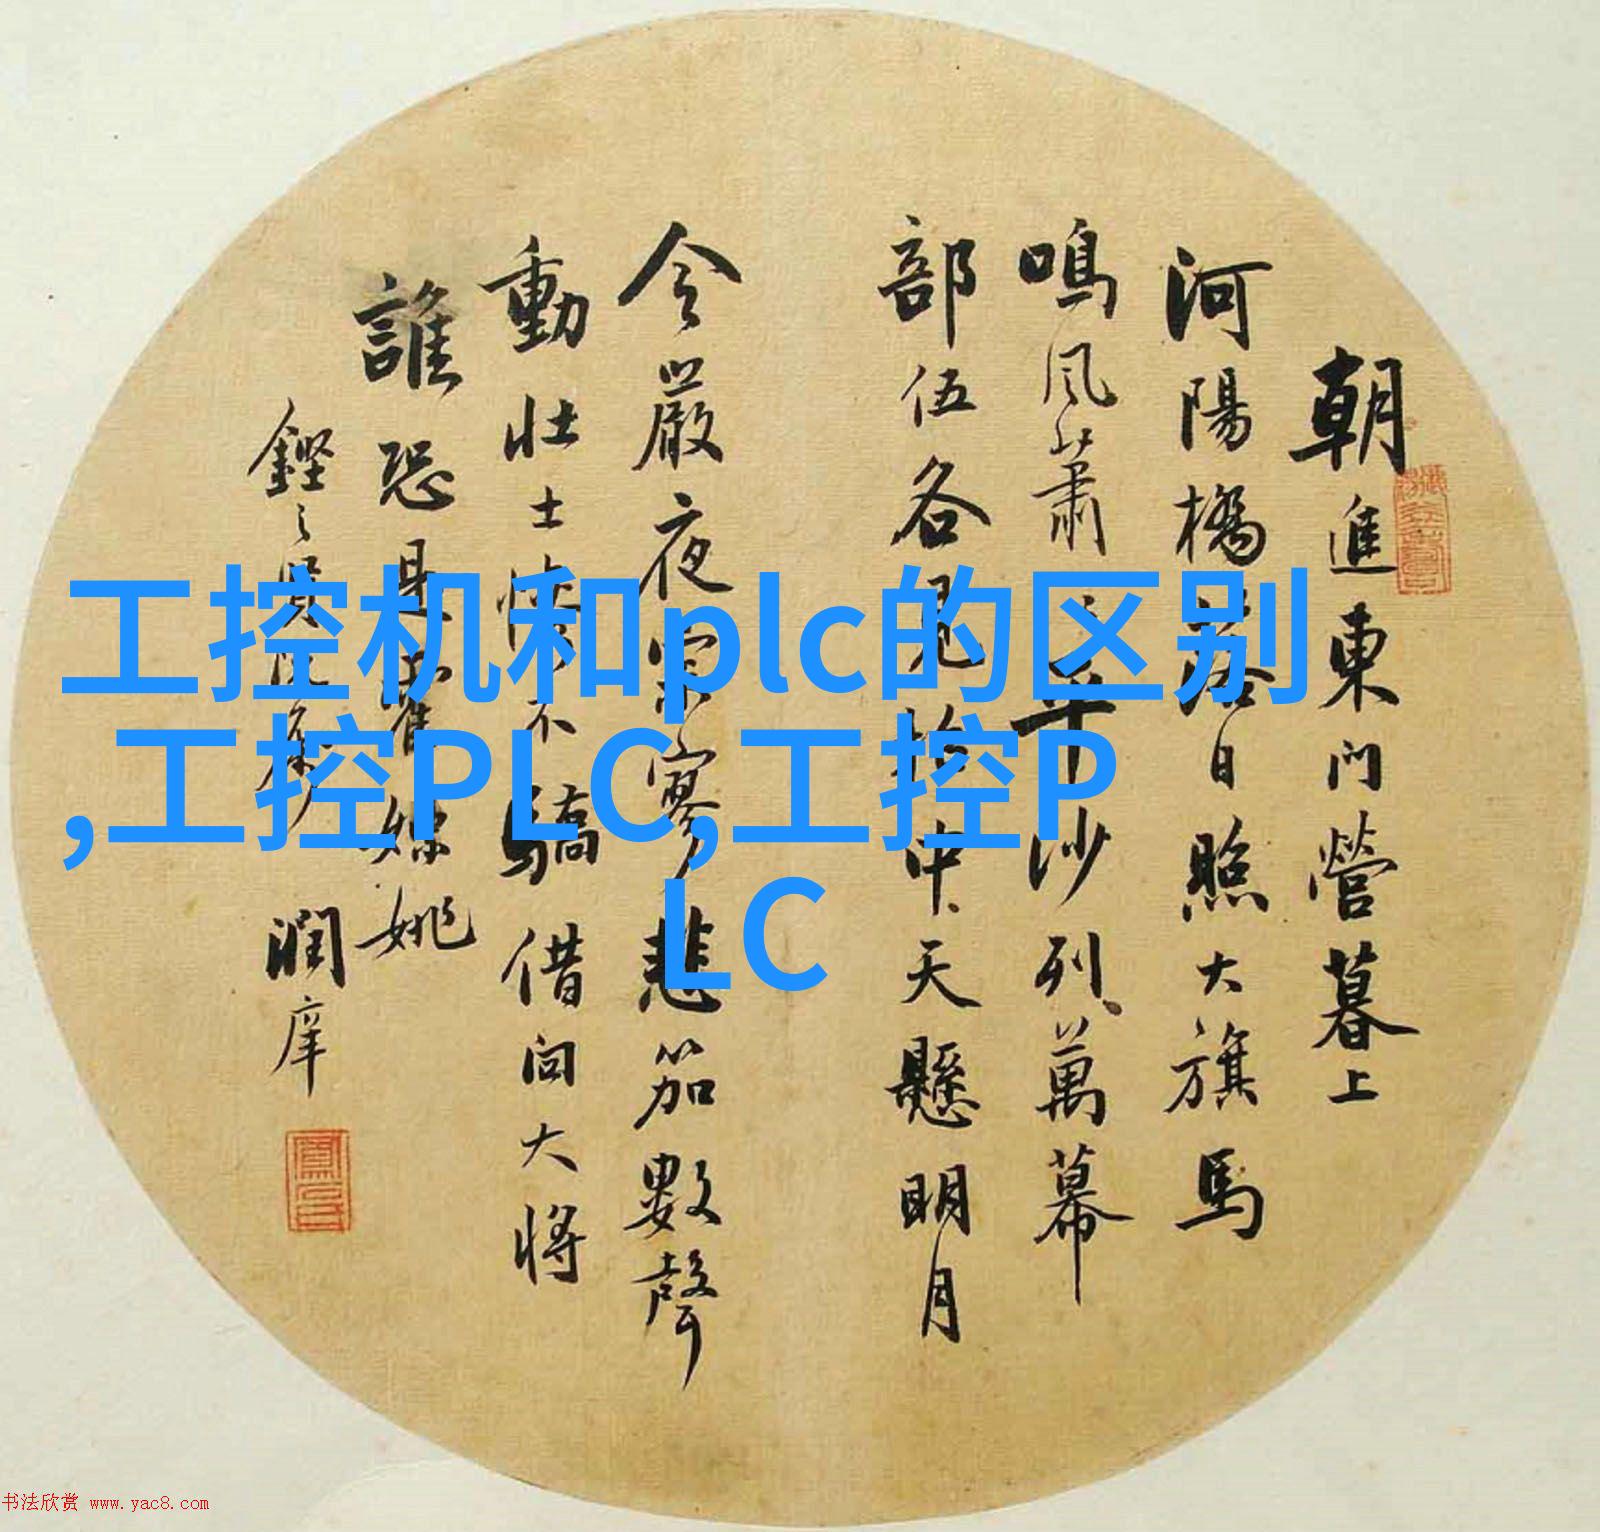 工控机和plc的区别
,工控PLC,工控P
LC
朝進東門營暮上
河陽橋落日照大旗馬
鳴風蕭々平沙列萬幕
部伍各見招中天懸明月
令嚴夜寂寥悲笳數聲
動壯士慘不驕借問大將
誰恐是霍嫖姚
鏗之
潤庠
书法欣赏 www.yac8.com